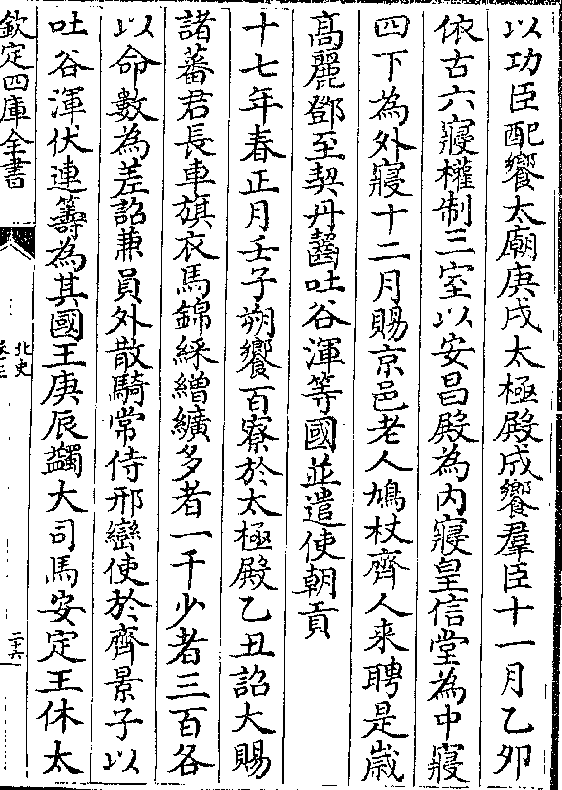 以功臣配饗太廟庚戌太極殿成饗羣臣十一月乙卯
依古六寢權制三室以安昌殿為内寢皇信堂為中寢
四下為外寢十二月賜京邑老人鳩杖齊人来聘是嵗
高麗鄧至契丹齧吐谷渾等國並遣使朝貢
十七年春正月壬子朔饗百寮於太極殿乙丑詔大賜
諸蕃君長車旗衣馬錦綵繒纊多者一千少者三百各
以命數為差詔兼員外散騎常侍邢巒使於齊景子以
吐谷渾伏連籌為其國王庚辰蠲大司馬安定王休太
欽定四庫全書
北史
卷三
二十六